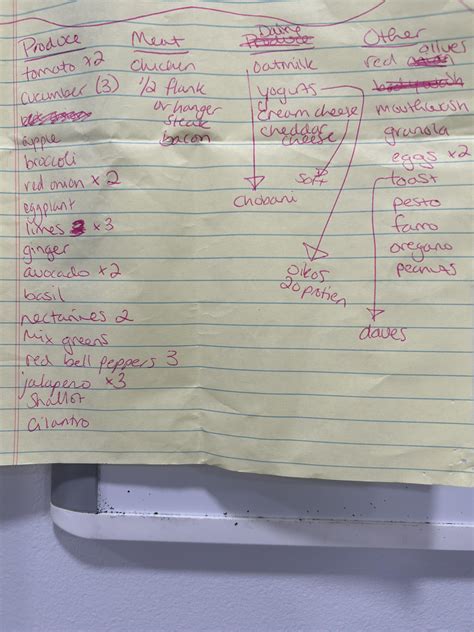 Produce
tomato x2
cucumber (3)
apple
broccoli
red onion x 2
eggplant
limes x 3
ginger
avocado x 2
basil
nectarines 2
Mix greens
red bell peppers 3
jalapeno x3
Shallot
cilantro
Meat
chicken
1/2 flank
or hanger
steak
bacon
Dairy
Produce
oatmilk
yogurts
cream cheese
cheddar
cheese
soft
Chobani
Oikos
20 protien
Other
red olives
bodywash
mouthwash
granola
eggs x2
toast
pesto
farro
oregano
peanuts
daves